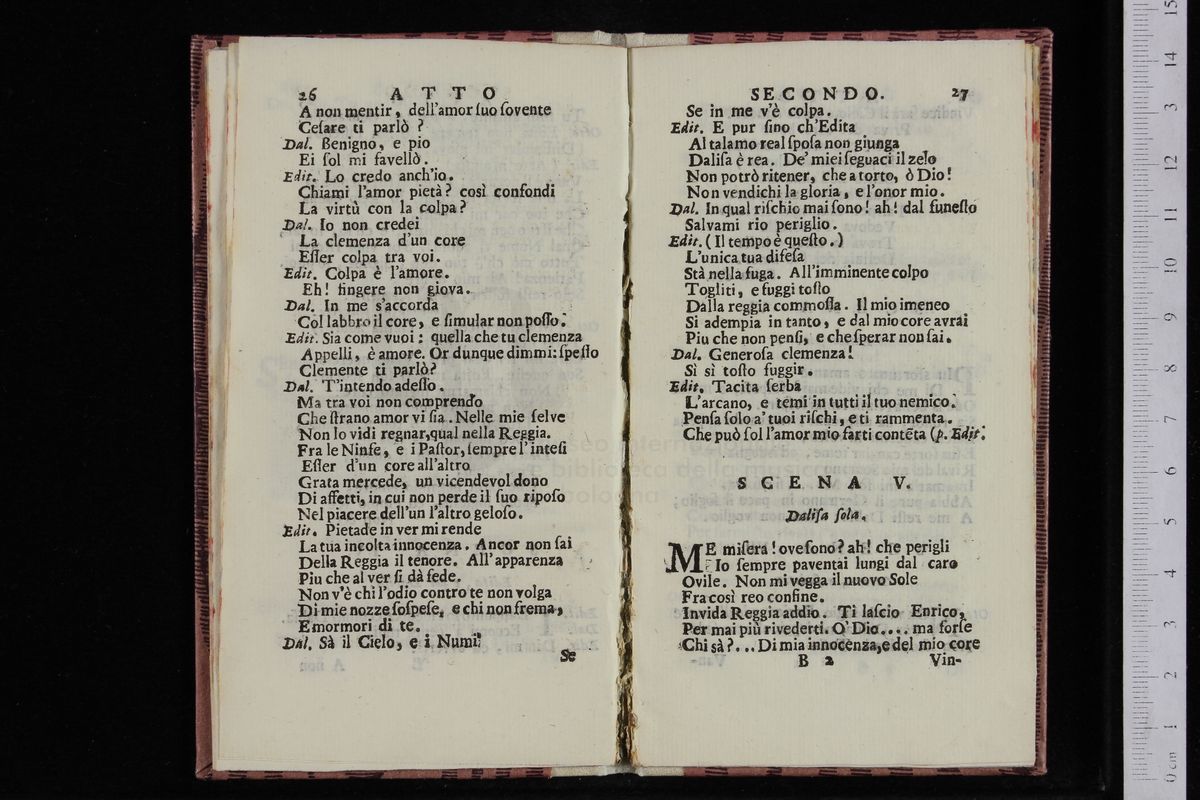 26 ATTO
A non mentir, dell'amor ſuo ſovente
Ceſare ti parlò ?
Dal. Benigno, e pio
Ei ſol mi favellò.
Edit. Lo credo anch'io.
Chiami l'amor pietà? così confondi
La virtù con la colpa?
Dal. Io non credei
La clemenza d'un core
Eſſer colpa tra voi.
Edit. Colpa è l'amore.
Eh! fingere non giova.
Dal. In me s'accorda
Col labbro il core, e ſimular non poſſo.
Edit. Sia come vuoi: quella che tu clemenza
Appelli, è amore. Or dunque dimmi: ſpeſſo
Clemente ti parlò?
Dal. T'intendo adeſſo.
Ma tra voi non comprendo
Che ſtrano amor vi ſia. Nelle mie ſelve
Non lo vidi regnar, qual nella Reggia.
Fra le Ninfe, e i Paſtor, ſempre l'inteſi
Eſſer d'un core all'altro
Grata mercede, un vicendevol dono
Di affetti, in cui non perde il ſuo ripoſo
Nel piacere dell'un l'altro geloſo.
Edit. Pietade in ver mi rende
La tua incolta innocenza. Ancor non ſai
Della Reggia il tenore. All'apparenza
Piu che al ver ſi dà fede.
Non v'è chi l'odio contro te non volga
Di mie nozze ſoſpeſe, e chi non frema,
E mormori di te.
Dal. Sà il Cielo, e i Numi
Se
SECONDO. 27
Se in me v'è colpa.
Edit. E pur ſino ch'Edita
Al talamo real ſpoſa non giunga
Daliſa è rea. De' miei ſeguaci il zelo
Non potrò ritener, che a torto, ò Dio!
Non vendichi la gloria, e l'onor mio.
Dal. In qual riſchio mai ſono! ah! dal funeſto
Salvami rio periglio.
Edit. (Il tempo è queſto.)
L'unica tua difeſa
Stà nella fuga. All'imminente colpo
Togliti, e fuggi toſto
Dalla reggia commoſſa. Il mio imeneo
Si adempia in tanto, e dal mio core avrai
Piu che non penſi, e che ſperar non ſai.
Dal. Generoſa clemenza!
Sì sì toſto fuggir.
Edit. Tacita ſerba
L'arcano, e temi in tutti il tuo nemico.
Penſa ſolo a' tuoi riſchi, e ti rammenta.
Che può ſol l'amor mio farti contẽta (p. Edit.
SCENA V.
Daliſa ſola.
ME miſera! ove ſono? ah! che perigli
Io ſempre paventai lungi dal caro
Ovile. Non mi vegga il nuovo Sole
Fra così reo confine.
Invida Reggia addio. Ti laſcio Enrico,
Per mai più rivederti. O' Dio.... ma forſe
Chi sà?... Di mia innocenza, e del mio core
B 2 Van-